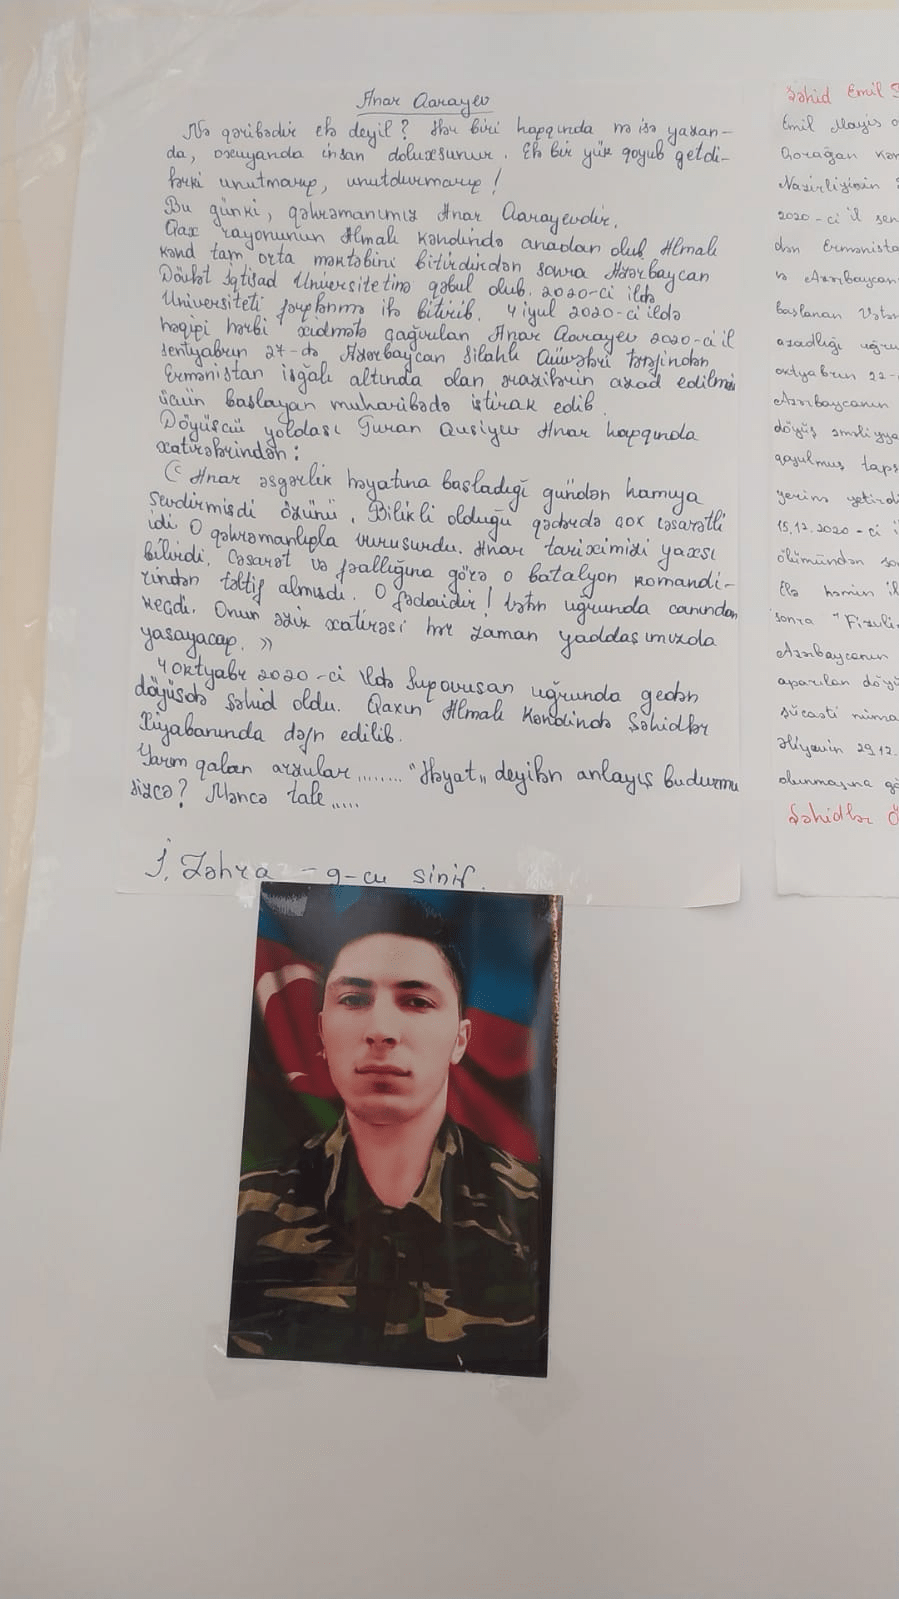 Anar Qarayev
Nə qəribədir elə deyil? Hər biri haqqında nə isə yazan-
da, oxuyanda insan doluxsunur. Elə bir yük qoyub getdi-
lərki unutmarıq, unutdurmarıq!
Bu günki, qəhrəmanımız Anar Qarayevdir.
Qax rayonunun Almalı kəndində anadan olub Almalı
kənd tam orta məktəbini bitirdirdən sonra Azərbaycan
Dövlət İqtisad Universitetinə qəbul olub. 2020-ci ildə
Universiteti fərqlənmə ilə bitirib. 4 iyul 2020-ci ildə
həqiqi hərbi xidmətə çağırılan Anar Qarayev 2020-ci il
sentyabrın 27-də Azərbaycan Silahlı Qüvvələri tərəfindən
Ermənistan işğalı altında olan ərazilərin azad edilməsi
üçün başlayan muharibədə iştirak edib.
Döyüşçü yoldaşı Turan Qusiyev Anar haqqında
xatirələrindən:
« Anar əsgərlik həyatına başladığı gündən hamıya
sevdirmişdi özünü. Bilikli olduğu qədərdə çox cəsarətli
idi O qəhrəmanlıqla vuruşurdu. Anar tariximizi yaxşı
bilirdi. Cəsarət və fəallığına görə o batalyon komandi-
rindən təltif almışdı. O fədaidir! Vətən uğrunda canından
keçdi. Onun əziz xatirəsi hər zaman yaddaşımızda
yaşayacaq. »
4 oktyabr 2020-ci ildə Suqovuşan uğrunda gedən
döyüşdə şəhid oldu. Qaxın Almalı Kəndində Şəhidlər
Xiyabanında dəfn edilib.
Yarım qalan arzular........ "Həyat,, deyilən anlayış budurmu
sizcə? Məncə tale.....
İ. Zəhra - 9-cu sinif.
Şəhid Emil
Emil Mayis
Qorağan
Nazirliyinin
2020-ci il
dən
və Azərbaycan
başlanan Vətən
azadlığı
oktyabrın 22-
Azərbaycanın
döyüş
qoyulmuş
yerinə
15.12.2020-ci
ölümündən
Elə həmin
sonra "Füzuli
Azərbaycanın
aparılan
şücaəti
Əliyevin 29.12.
olunmasına
Şəhidlər